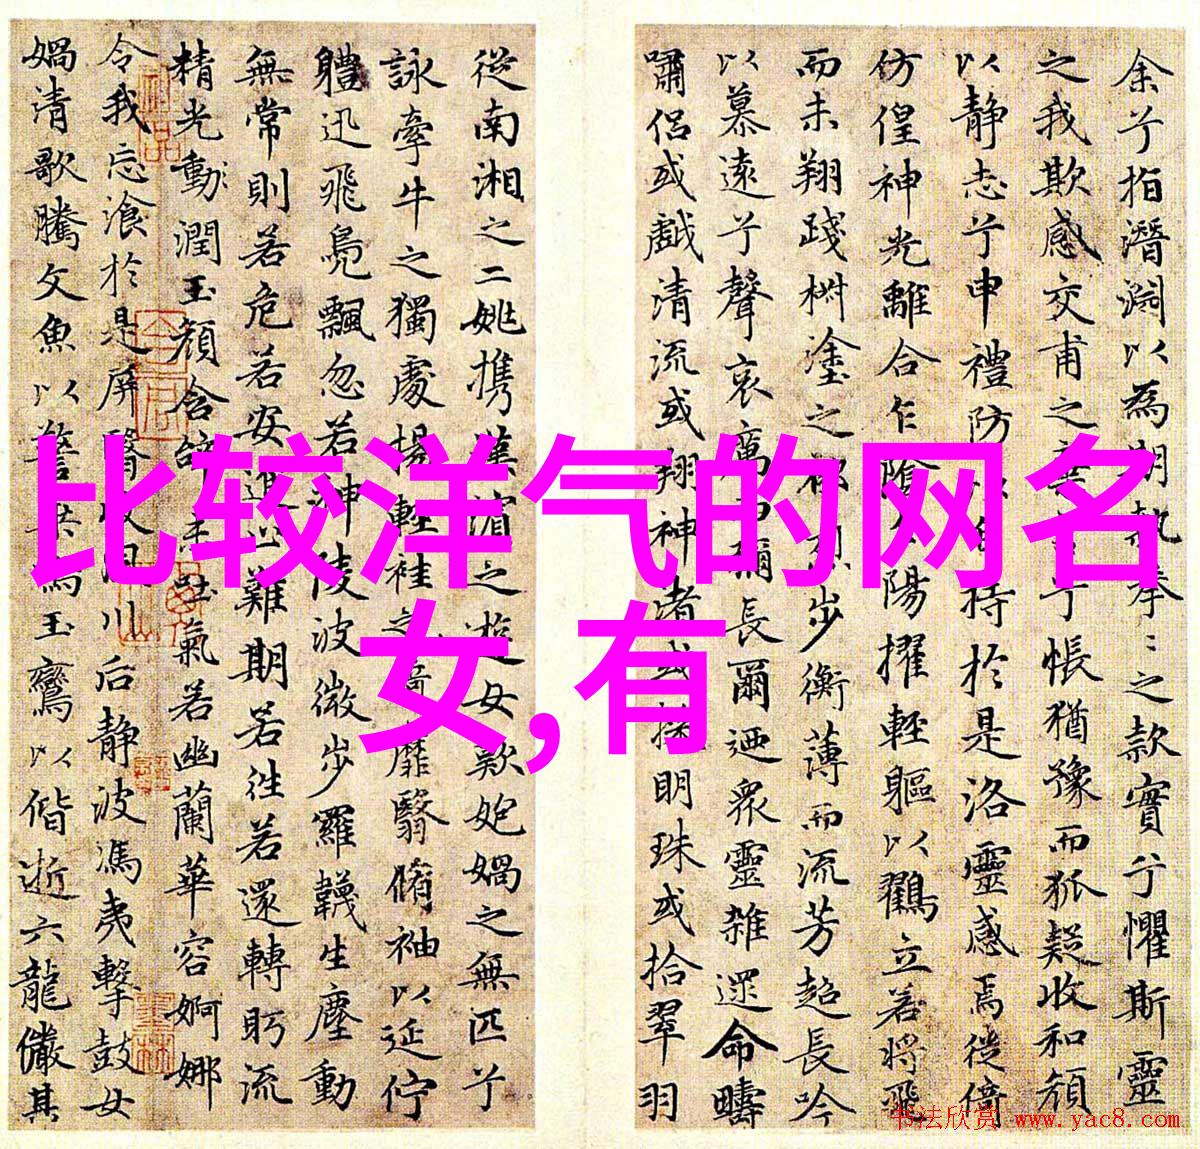 比较洋气的网名
女,有
余兮指潛淵以為期執拳〻之款實兮懼斯靈
之我欺感交甫之棄言兮悵猶豫而狐疑收和顏
以静志兮申禮防以自持於是洛靈感焉徙倚
仿偟神光離合乍陰乍陽擢輕軀以鶴立若將飛
而未翔踐椒塗之郁烈步衡薄而流芳超長吟
以慕遠兮聲哀厲而彌長爾迺眾靈雜遝命疇
嘯侶或戲清流或翔神渚或採明珠或拾翠羽
從南湘之二姚攜漢濱之遊女歎匏媧之無匹兮
詠牽牛之獨處揚輕袿之猗靡翳脩袖以延佇
體迅飛鳧飄忽若神陵波微步羅韈生塵動
無常則若危若安進止難期若往若還轉眄流
精光動潤玉顏含辭未吐氣若幽蘭華容婀娜
令我忘飡於是屏翳收風川后静波馮夷擊鼓女
媧清歌騰文魚以警乘鳴玉鑾以偕逝六龍儼其
书法欣赏 www.yac8.com